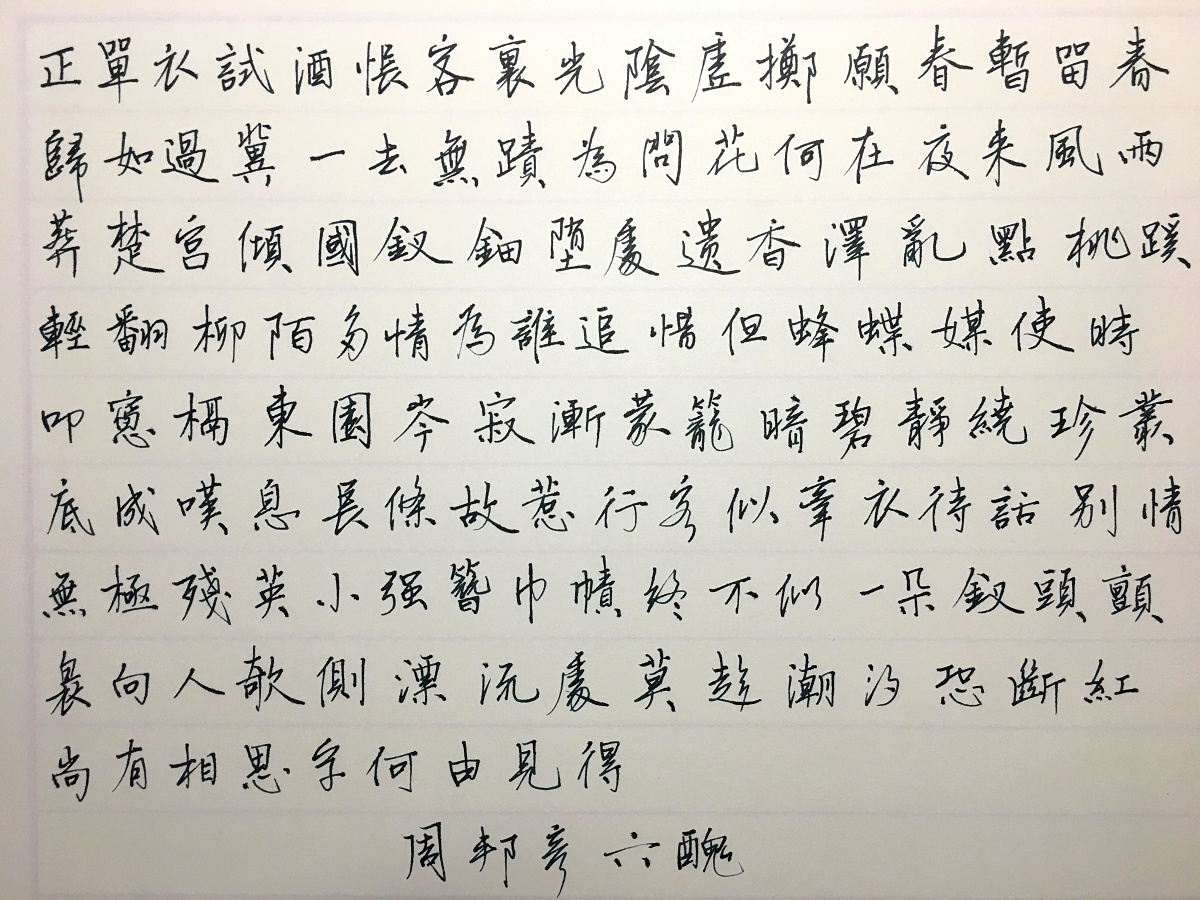 正單衣試酒悵客裏光陰虛擲願春暫留春
歸如過翼一去無蹟為問花何在夜来風雨
葬楚宮傾國釵鈿堕處遗香澤亂點桃蹊
輕翻柳陌多情為誰追惜但蜂蝶媒使時
叩窻槅東園岑寂漸蒙籠暗碧靜繞珍叢
底成嘆息長條故惹行客似牽衣待話别情
無極殘英小强簪巾幘終不似一朵釵頭顫
裊向人欹側漂流處莫趁潮汐恐斷紅
尚有相思字何由見得
周邦彦六醜